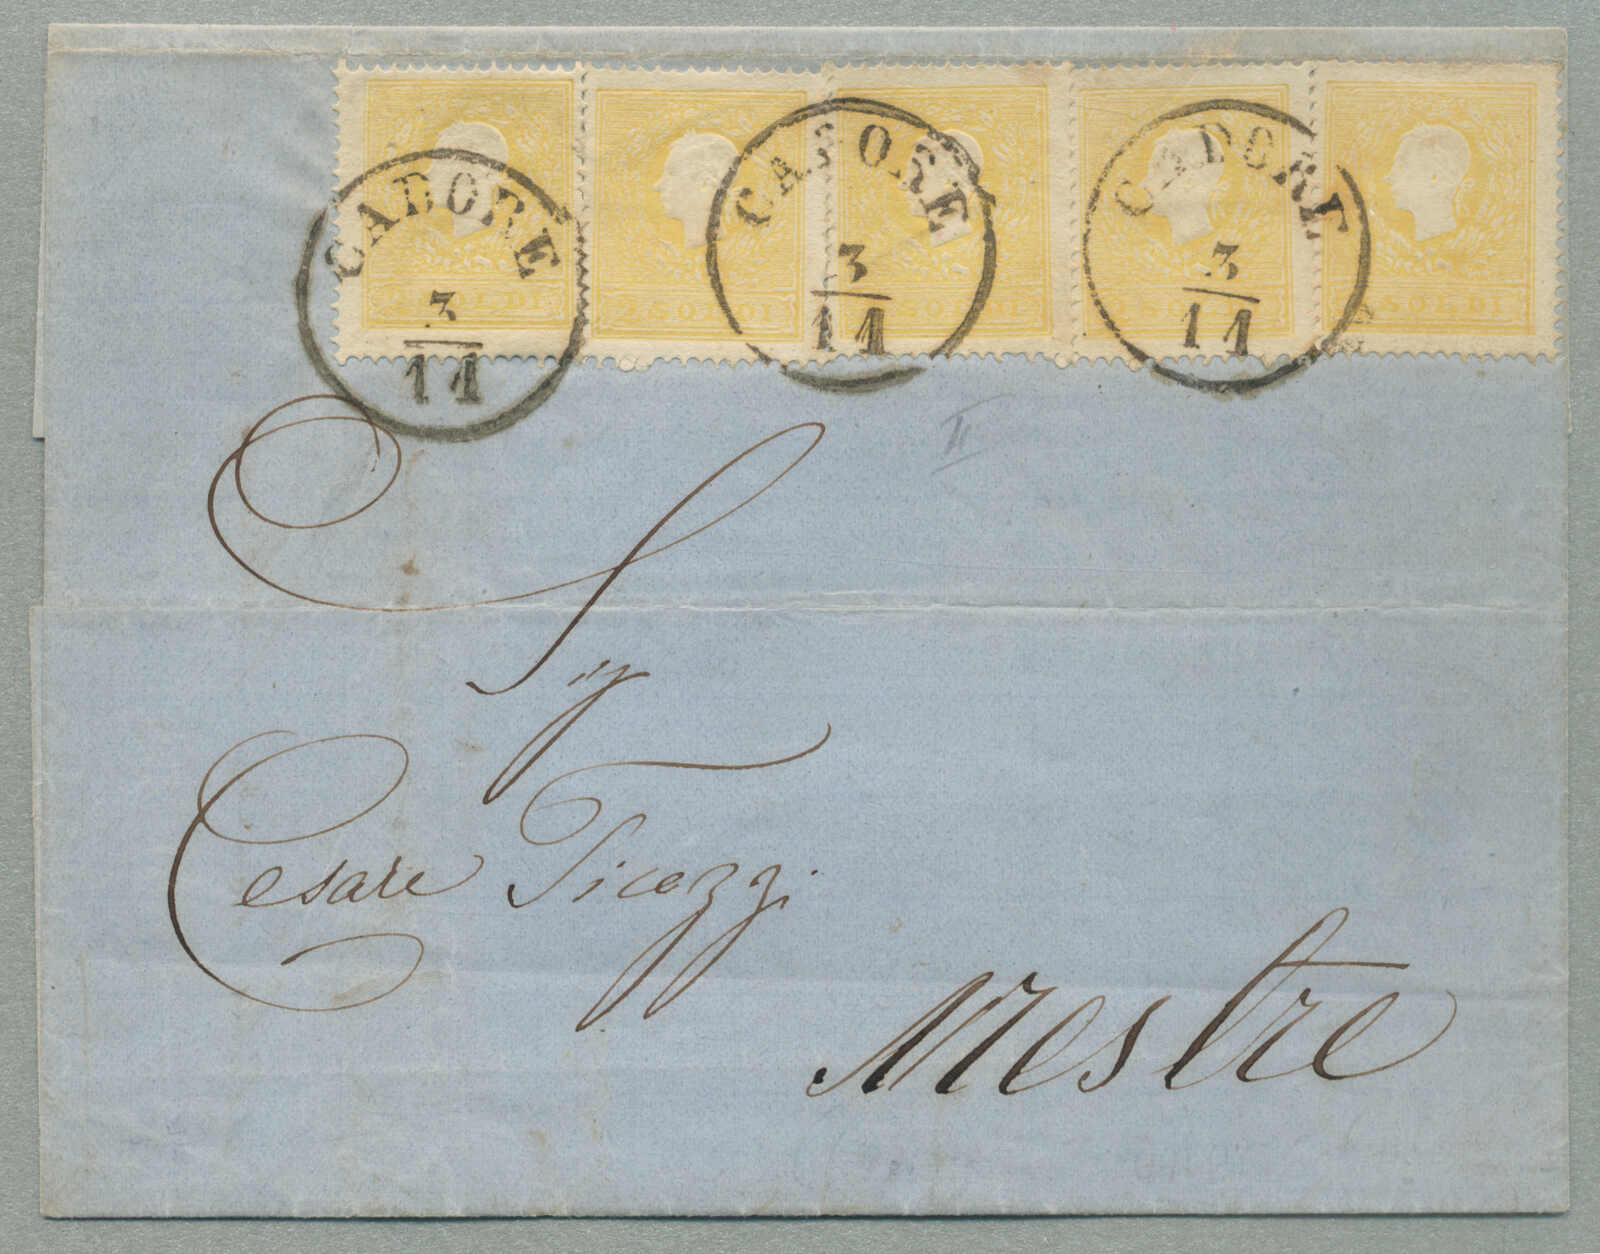 2 SOLDI 2 SOLDI 2 SOLDI 2 SOLDI 2 SOLDI
CADORE CADORE CADORE
3 3 3
11 11 11
II
Sig
Cesare Ticozzi
Mestre